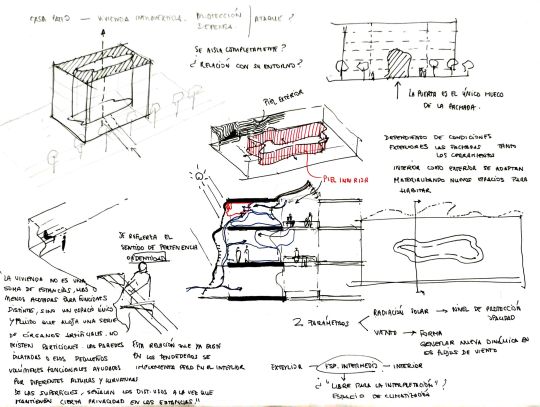 CASA PATIO — VIVIENDA INTROVERTIDA. PROTECCIÓN / ATAQUE ?
DEFENSA
SE AISLA COMPLETAMENTE?
¿ RELACIÓN CON SU ENTORNO?
LA PUERTA ES EL ÚNICO HUECO
DE LA FACHADA.
PIEL EXTERIOR
PIEL INTERIOR
DEPENDIENDO DE CONDICIONES
EXTERIORES LAS FACHADAS TANTO
LOS CERRAMIENTOS
INTERIOR COMO EXTERIOR SE ADAPTAN
MATERIALIZANDO NUEVOS ESPACIOS PARA
HABITAR
SE REFUERZA EL
SENTIDO DE PERTENENCIA
IDENTIDAD
"LA VIVIENDA NO ES UNA
SUMA DE ESTANCIAS, MÁS O
MENOS ACOTADAS PARA FUNCIONES
DISTINTAS, SINO UN ESPACIO ÚNICO
Y FLUIDO QUE ALOJA UNA SERIE
DE ÓRGANOS ARTIFICIALES. NO
EXISTEN PARTICIONES. LAS PAREDES
DILATADAS O ELOS PEQUEÑOS
VOLÚMENES FUNCIONALES AYUDADOS
POR DIFERENTES ALTURAS Y CURVATURAS
DE LAS SUPERFICIES, SEÑALAN LOS DISTINTOS A LA VEZ QUE
MANTIENEN CIERTA PRIVACIDAD EN LAS ESTANCIAS"
ESTA RELACIÓN QUE YA EXISTE
EN LOS TENDEDEROS SE
IMPLEMENTA PERO EN EL INTERIOR
2 PARÁMETROS
RADIACIÓN SOLAR → NIVEL DE PROTECCIÓN
OPACIDAD
VIENTO → FORMA
GENERAR NUEVA DINÁMICA EN
LOS FLUJOS DE VIENTO
EXTERIOR — ESP. INTERMEDIO — INTERIOR
¿ "LIBRE PARA LA INTERPRETACIÓN" ?
ESPACIO DE CLIMATIZACIÓN